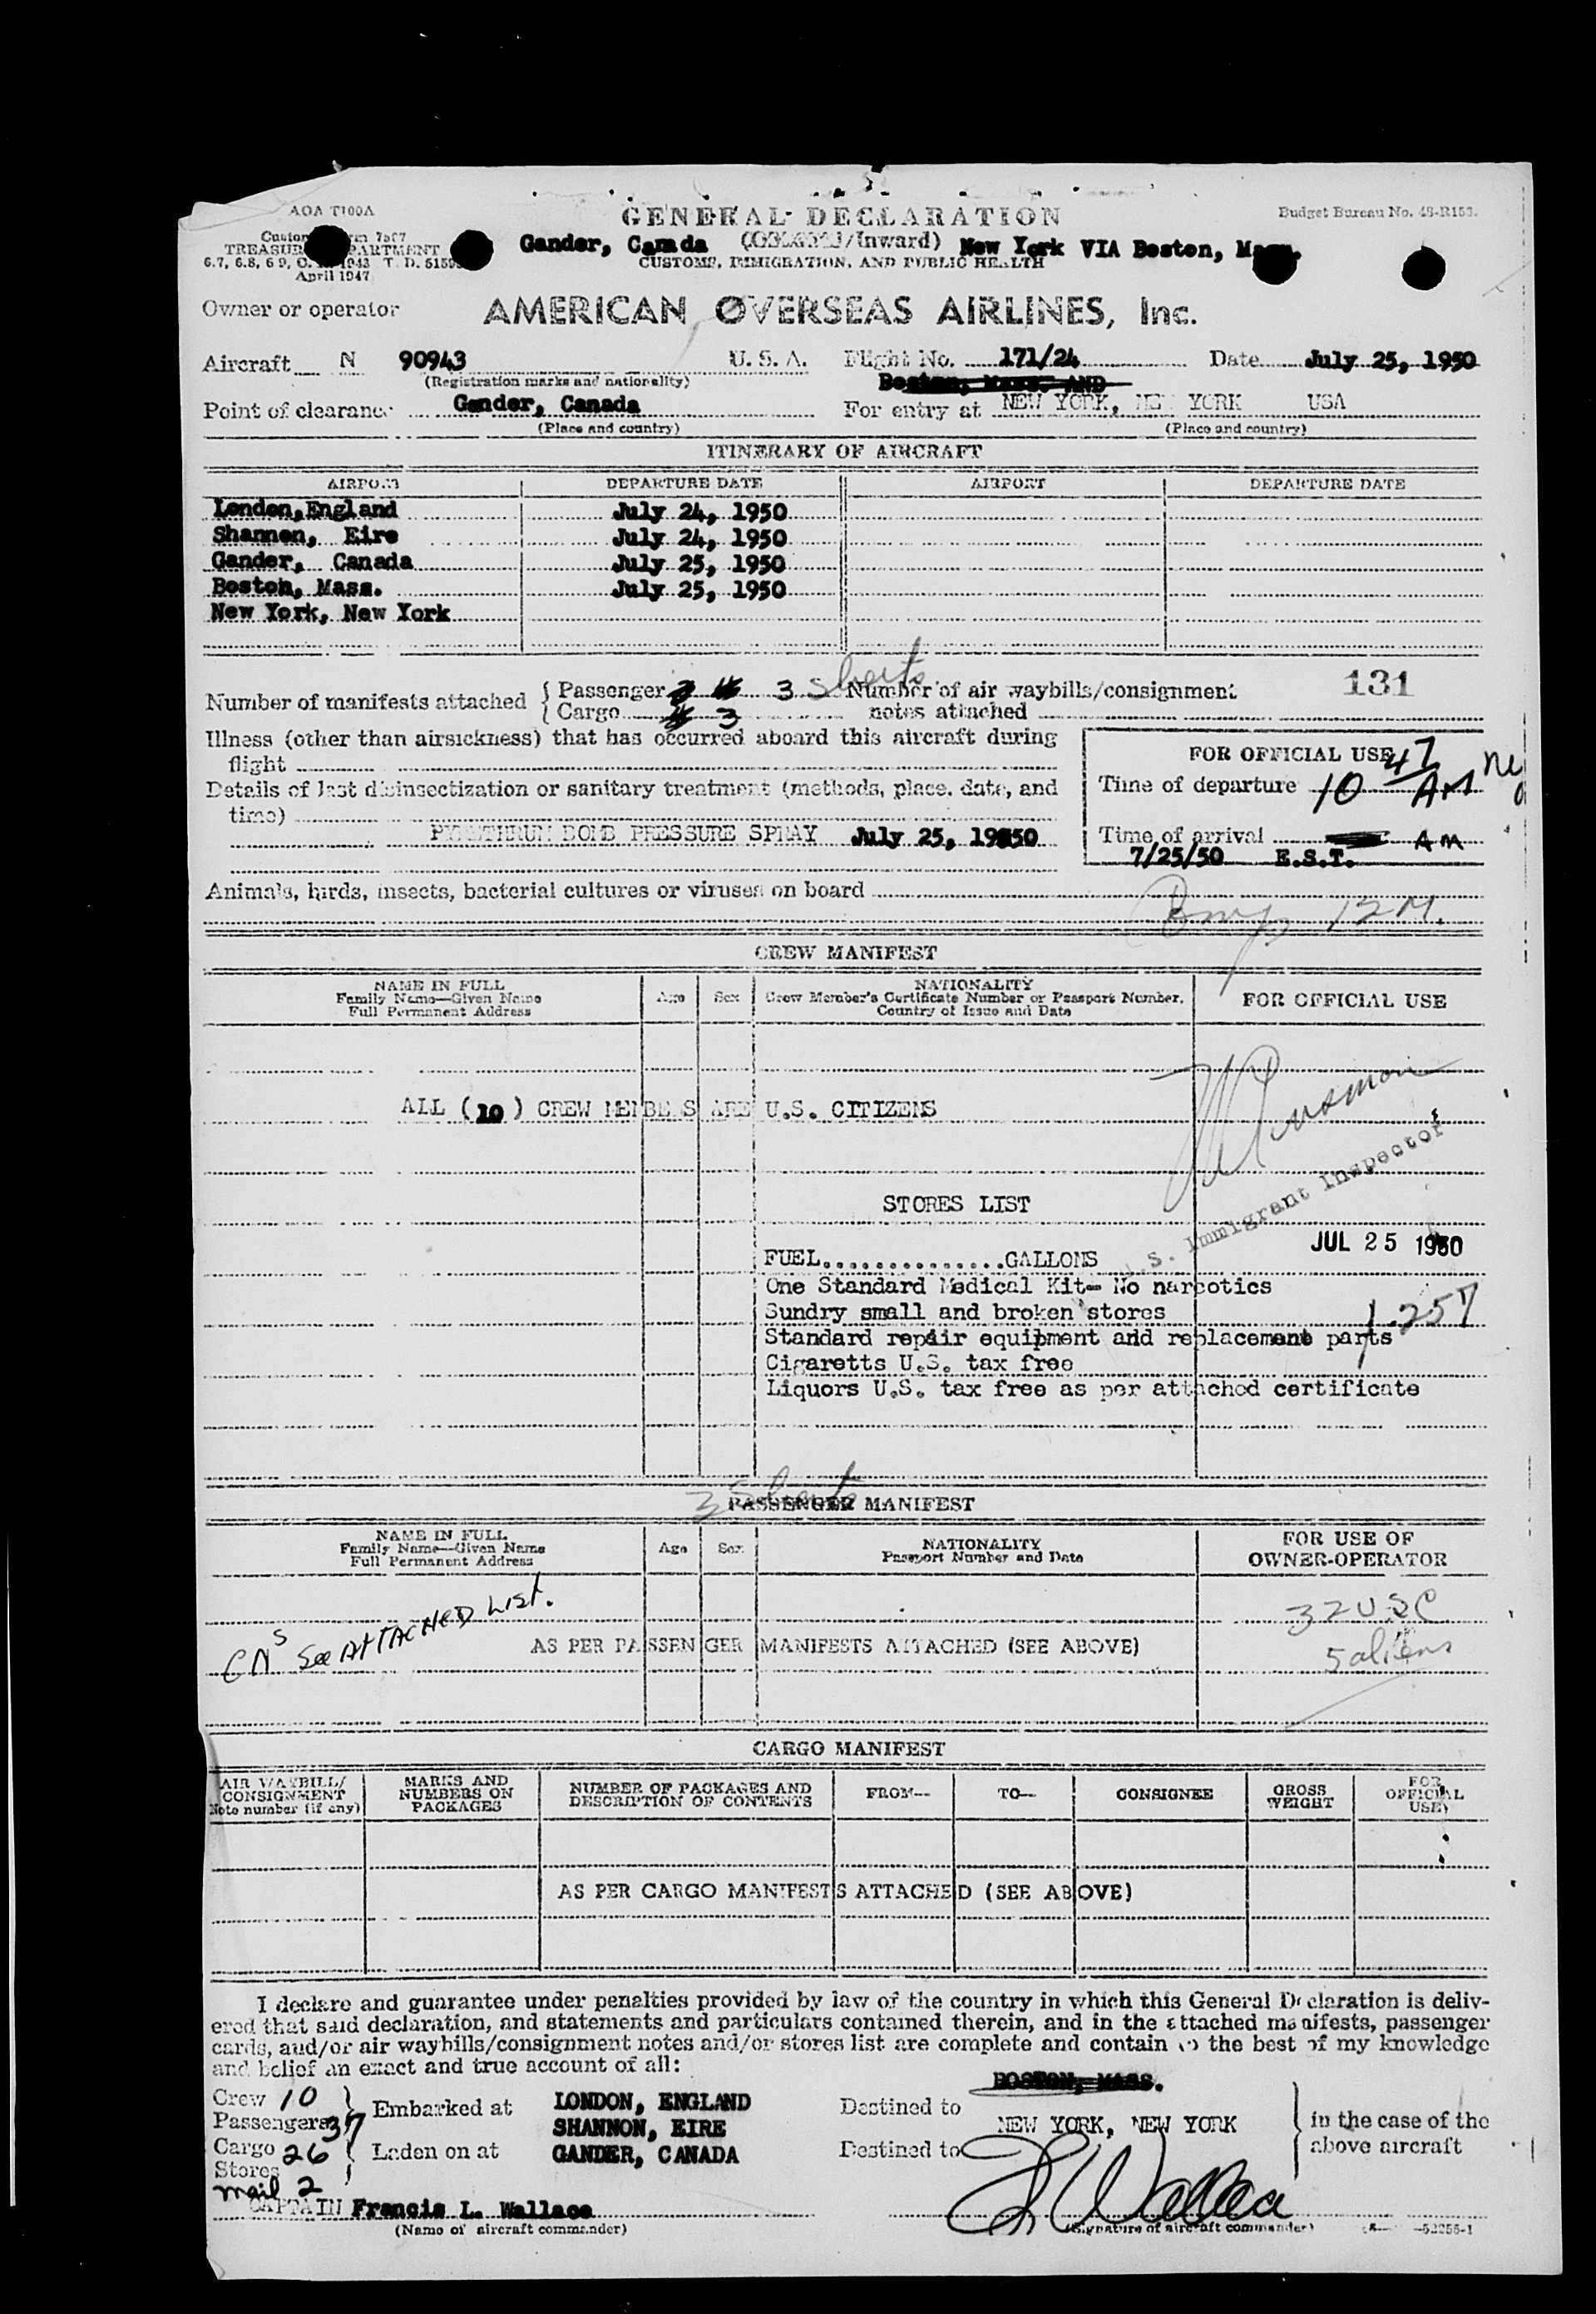 AOA T100A
GENERAL DECLARATION
Budget Bureau No. 48-R153.
Customs Form 7507
TREASURY DEPARTMENT
Gander, Canada (Outward/Inward) New York VIA Boston, Mass.
6.7, 6.8, 6.9, C. 1943 T. D. 5159
CUSTOMS, IMMIGRATION, AND PUBLIC HEALTH
April 1947
Owner or operator AMERICAN OVERSEAS AIRLINES, Inc.
Aircraft N 90943 U. S. A. Flight No. 171/24 Date July 25, 1950
(Registration marks and nationality)
Boston, Mass. AND
Point of clearance Gander, Canada For entry at NEW YORK, NEW YORK USA
(Place and country) (Place and country)
ITINERARY OF AIRCRAFT
AIRPORT DEPARTURE DATE AIRPORT DEPARTURE DATE
London, England July 24, 1950
Shannon, Eire July 24, 1950
Gander, Canada July 25, 1950
Boston, Mass. July 25, 1950
New York, New York
Number of manifests attached { Passenger 3 Sheets Number of air waybills/consignment 131
Cargo 3 notes attached
Illness (other than airsickness) that has occurred aboard this aircraft during
flight
FOR OFFICIAL USE
Time of departure 10 47 AM
Details of last disinsectization or sanitary treatment (methods, place, date, and
time)
PYRETHRUM BOMB PRESSURE SPRAY July 25, 1950
Time of arrival AM
7/25/50 E.S.T.
Animals, birds, insects, bacterial cultures or viruses on board
CREW MANIFEST
NAME IN FULL
Family Name—Given Name
Full Permanent Address
Age
Sex
NATIONALITY
Crew Member's Certificate Number or Passport Number,
Country of Issue and Date
FOR OFFICIAL USE
ALL (10) CREW MEMBERS ARE U.S. CITIZENS
U.S. Immigrant Inspector
STORES LIST
JUL 25 1950
FUEL...............GALLONS
One Standard Medical Kit- No narcotics
Sundry small and broken stores
1.257
Standard repair equipment and replacement parts
Cigaretts U.S. tax free
Liquors U.S. tax free as per attached certificate
3 Sheets
PASSENGER MANIFEST
NAME IN FULL
Family Name—Given Name
Full Permanent Address
Age
Sex
NATIONALITY
Passport Number and Date
FOR USE OF
OWNER-OPERATOR
32 USC
CNS See ATTACHED LIST.
AS PER PASSENGER MANIFESTS ATTACHED (SEE ABOVE)
5 aliens
CARGO MANIFEST
AIR WAYBILL/
CONSIGNMENT
Note number (if any)
MARKS AND
NUMBERS ON
PACKAGES
NUMBER OF PACKAGES AND
DESCRIPTION OF CONTENTS
FROM—
TO—
CONSIGNEE
GROSS
WEIGHT
FOR
OFFICIAL
USE
AS PER CARGO MANIFESTS ATTACHED (SEE ABOVE)
I declare and guarantee under penalties provided by law of the country in which this General Declaration is deliv-
ered that said declaration, and statements and particulars contained therein, and in the attached manifests, passenger
cards, and/or air waybills/consignment notes and/or stores list are complete and contain to the best of my knowledge
and belief an exact and true account of all:
BOSTON, MASS.
Crew 10
Passengers 37
Cargo 26
Stores
mail 2
Embarked at
Laden on at
LONDON, ENGLAND
SHANNON, EIRE
GANDER, CANADA
Destined to
NEW YORK, NEW YORK
Destined to
in the case of the
above aircraft
CAPTAIN Francis L. Wallace
F L Wallace
(Name of aircraft commander) (Signature of aircraft commander)